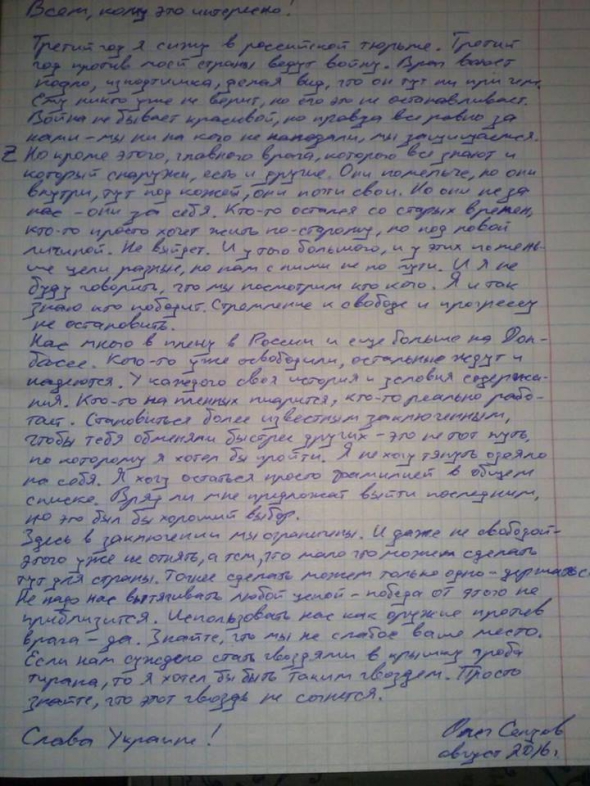 Всем, кому это интересно!
Третий год я сижу в российской тюрьме. Третий
год против моей страны ведут войну. Враг воюет
подло, исподтишка, делая вид, что он тут ни при чем.
Ему никто уже не верит, но его это не останавливает.
Война не бывает красивой, но правда все равно за
нами – мы ни на кого не нападали, мы защищаемся.
Z Но кроме этого, главного врага, которого все знают и
который снаружи, есть и другие. Они помельче, но они
внутри, тут под кожей, они почти свои. Но они не за
нас – они за себя. Кто-то остался со старых времен,
кто-то просто хочет жить по-старому, но под новой
личиной. Не выйдет. И у того большого, и у этих помень-
ше цели разные, но нам с ними не по пути. И я не
буду говорить, что мы посмотрим кто кого. Я и так
знаю кто победит. Стремление к свободе и прогрессу
не остановить.
Нас много в плену в России и еще больше на Дон-
бассе. Кого-то уже освободили, остальные ждут и
надеются. У каждого своя история и условия содержа-
ния. Кто-то на пленных пиарится, кто-то реально рабо-
тает. Становиться более известным заключенным,
чтобы тебя обменяли быстрее других – это не тот путь,
по которому я хотел бы пройти. Я не хочу тянуть одеяло
на себя. Я хочу остаться просто фамилией в общем
списке. Вряд ли мне предложат выйти последним,
но это был бы хороший выбор.
Здесь в заключении мы ограничены. И даже не свободой –
этого уже не отнять, а тем, что мало что можем сделать
тут для страны. Точнее сделать можем только одно – держаться.
Не надо нас вытягивать любой ценой – победа от этого не
приблизится. Использовать нас как оружие против
врага – да. Знайте, что мы не слабое ваше место.
Если нам суждено стать гвоздями в крышку гроба
тирана, то я хотел бы быть таким гвоздем. Просто
знайте, что этот гвоздь не согнется.
Слава Украине!
Олег Сенцов
август 2016г.